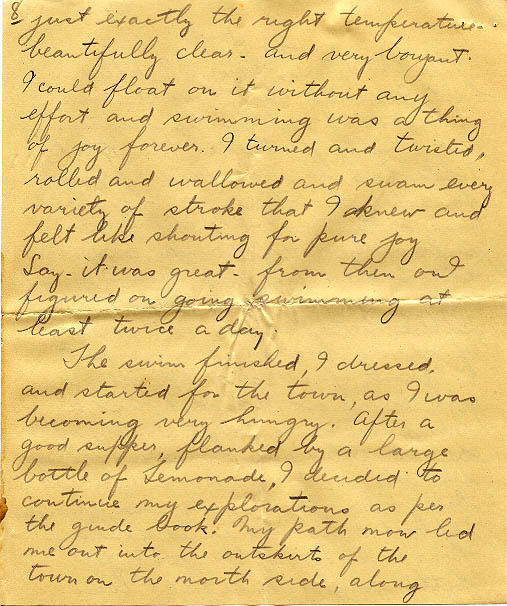 8 just exactly the right temperature -
beautifully clear - and very boyant.
I could float on it without any
effort and swimming was a thing
of joy forever. I turned and twisted,
rolled and wallowed and swam every
variety of stroke that I knew and
felt like shouting for pure joy
Say - it was great - from then on I
figured on going swimming at
least twice a day.
The swim finished, I dressed,
and started for the town, as I was
becoming very hungry. After a
good supper, flanked by a large
bottle of Lemonade, I decided to
continue my explorations as per
the guide book. My path now led
me out into the outskirts of the
town on the north side, along